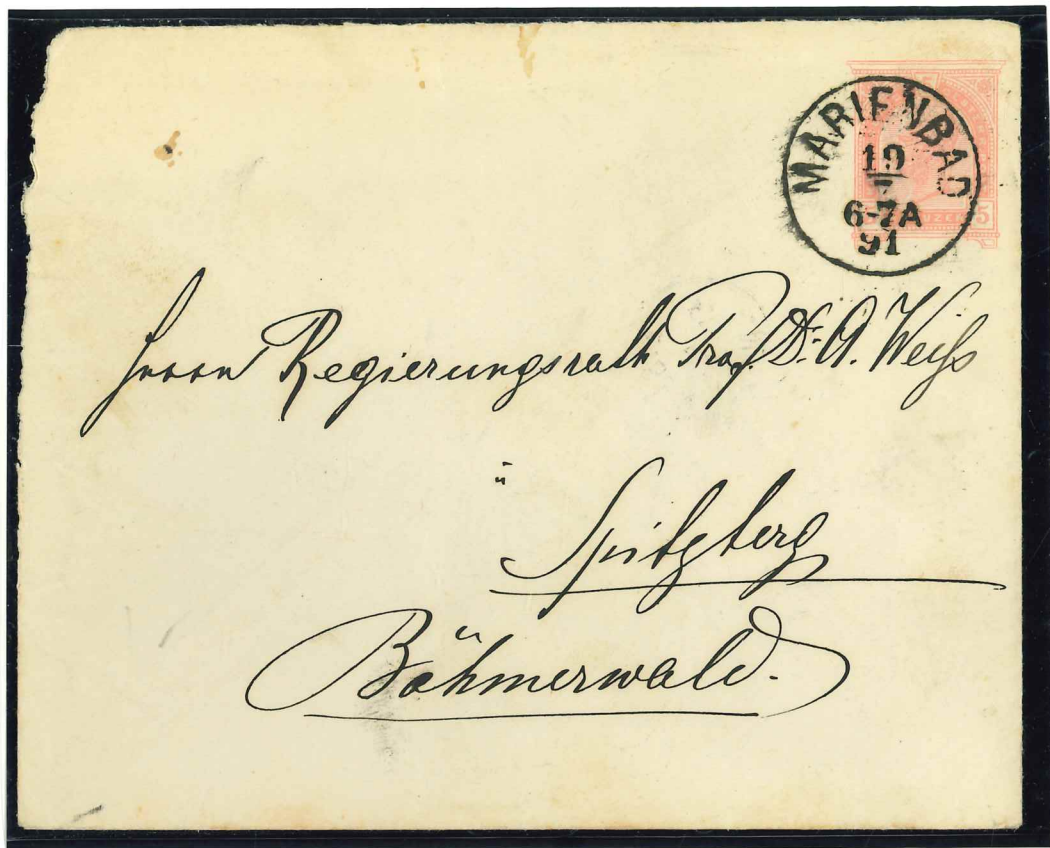 MARIENBAD
19
6-7A
91
5
Herrn Regierungsrath Prof. Dr. A. Weiss
Spitzberg
Böhmerwald.